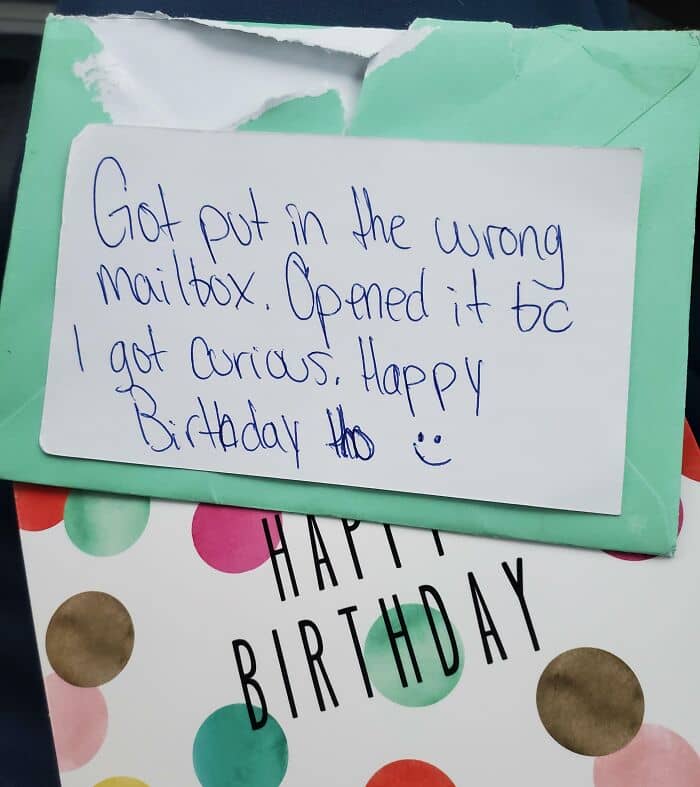 Got put in the wrong
mailbox. Opened it bc
I got curious. Happy
Birthday tho
HAPPY
BIRTHDAY